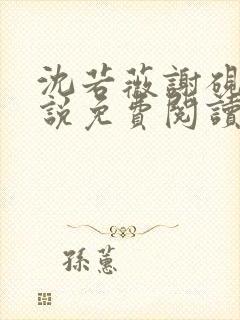 沈若薇謝硯
說免費閱讀
孫蕙